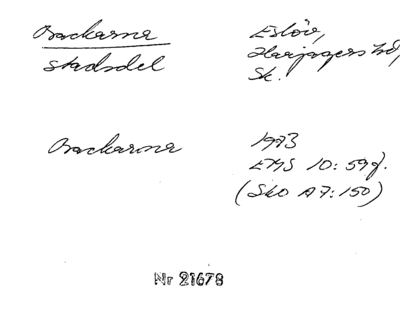 Backarna
stadsdel
Eslöv,
Harjagers hd,
Sk.
Backarna
1973
EMS 10:59f.
(Sko A7:150)
Nr 21678